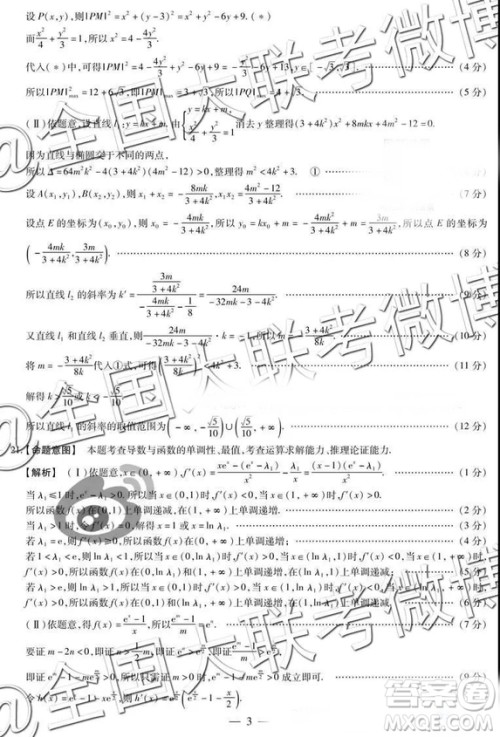 设P(x,y),则|PM|²=x²+(y-3)²=x²+y²-6y+9.(*)
而x²/4+y²/3=1,所以x²=4-4y²/3.
代入(*)中,可得|PM|²=4-4y²/3+y²-6y+9=-y²/3-6y+13,y∈[-√3,√3]. (4分)
所以|PM|²max=12+6√3,即|PM|max=3+√3,所以|PQ|max=4+√3. (5分)
(Ⅱ)依题意,设直线l₁:y=kx+m,由{y=kx+m, x²/4+y²/3=1 消去y整理得(3+4k²)x²+8mkx+4m²-12=0.
因为直线与椭圆交于不同的两点,
所以Δ=64m²k²-4(3+4k²)(4m²-12)>0,整理得m²<4k²+3. ①
设A(x₁,y₁),B(x₂,y₂),则x₁+x₂=-8mk/(3+4k²),x₁x₂=(4m²-12)/(3+4k²). (7分)
设点E的坐标为(x₀,y₀),则x₀=-4mk/(3+4k²),所以y₀=kx₀+m=-4mk²/(3+4k²)+m=3m/(3+4k²),所以点E的坐标为
(-4mk/(3+4k²),3m/(3+4k²)). (8分)
所以直线l₂的斜率为k′=(3m/(3+4k²))/(-4mk/(3+4k²)-1/8)=24m/(-32mk-3-4k²). (9分)
又直线l₁和直线l₂垂直,则24m/(-32mk-3-4k²)·k=-1,所以m=-(3+4k²)/8k. (10分)
将m=-(3+4k²)/8k代入①式,可得((3+4k²)/8k)²<4k²+3. (11分)
解得k>√5/10或k<-√5/10.
所以直线l₁的斜率的取值范围为(-∞,-√5/10)∪(√5/10,+∞). (12分)
21.【命题意图】 本题考查导数与函数的单调性、最值,考查运算求解能力、推理论证能力.
【解析】 (Ⅰ)依题意,x∈(0,+∞),f′(x)=(xeˣ-(eˣ-λ₁))/x²-λ₁/x=(x-1)(eˣ-λ₁)/x². (1分)
当λ₁≤1时,eˣ-λ₁>0.所以当x∈(0,1)时,f′(x)<0,当x∈(1,+∞)时,f′(x)>0.
所以函数f(x)在(0,1)上单调递减,在(1,+∞)上单调递增. (2分)
当λ₁>1时,令f′(x)=0,解得x=1或x=ln λ₁. (3分)
若λ₁=e,则ln λ₁=1,所以f′(x)≥0,所以函数f(x)在(0,+∞)上单调递增; (4分)
若1<λ₁<e,则ln λ₁<1,所以当x∈(0,ln λ₁)时,f′(x)>0,当x∈(ln λ₁,1)时,f′(x)<0,当x∈(1,+∞)时,f′(x)>0,所以函数f(x)在(0,ln λ₁)和(1,+∞)上单调递增,在(ln λ₁,1)上单调递减; (5分)
若λ₁>e,则ln λ₁>1,所以当x∈(0,1)时,f′(x)>0,当x∈(1,ln λ₁)时,f′(x)<0,当x∈(ln λ₁,+∞)时,f′(x)>0,所以函数f(x)在(0,1)和(ln λ₁,+∞)上单调递增,在(1,ln λ₁)上单调递减. (6分)
(Ⅱ)依题意,得f(x)=(eˣ-1)/x,所以
要证m-2n<0,即证
即证 (9分)
令h(x)=
— 3 —
@全国大联考微博
@全国大联考微博
@全国大联考微博
答案圈
MXQE.COM